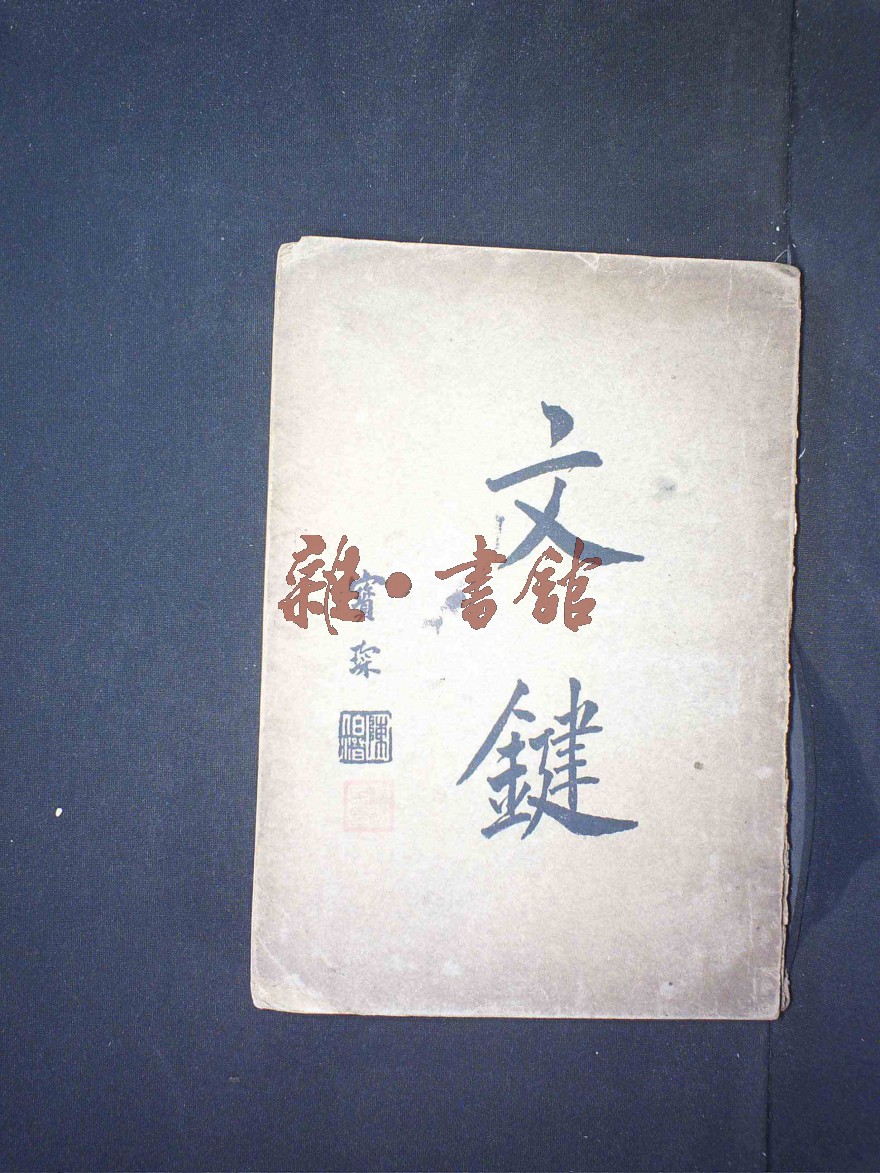 文鍵
寶琛
陳伯潛
雜·書舘